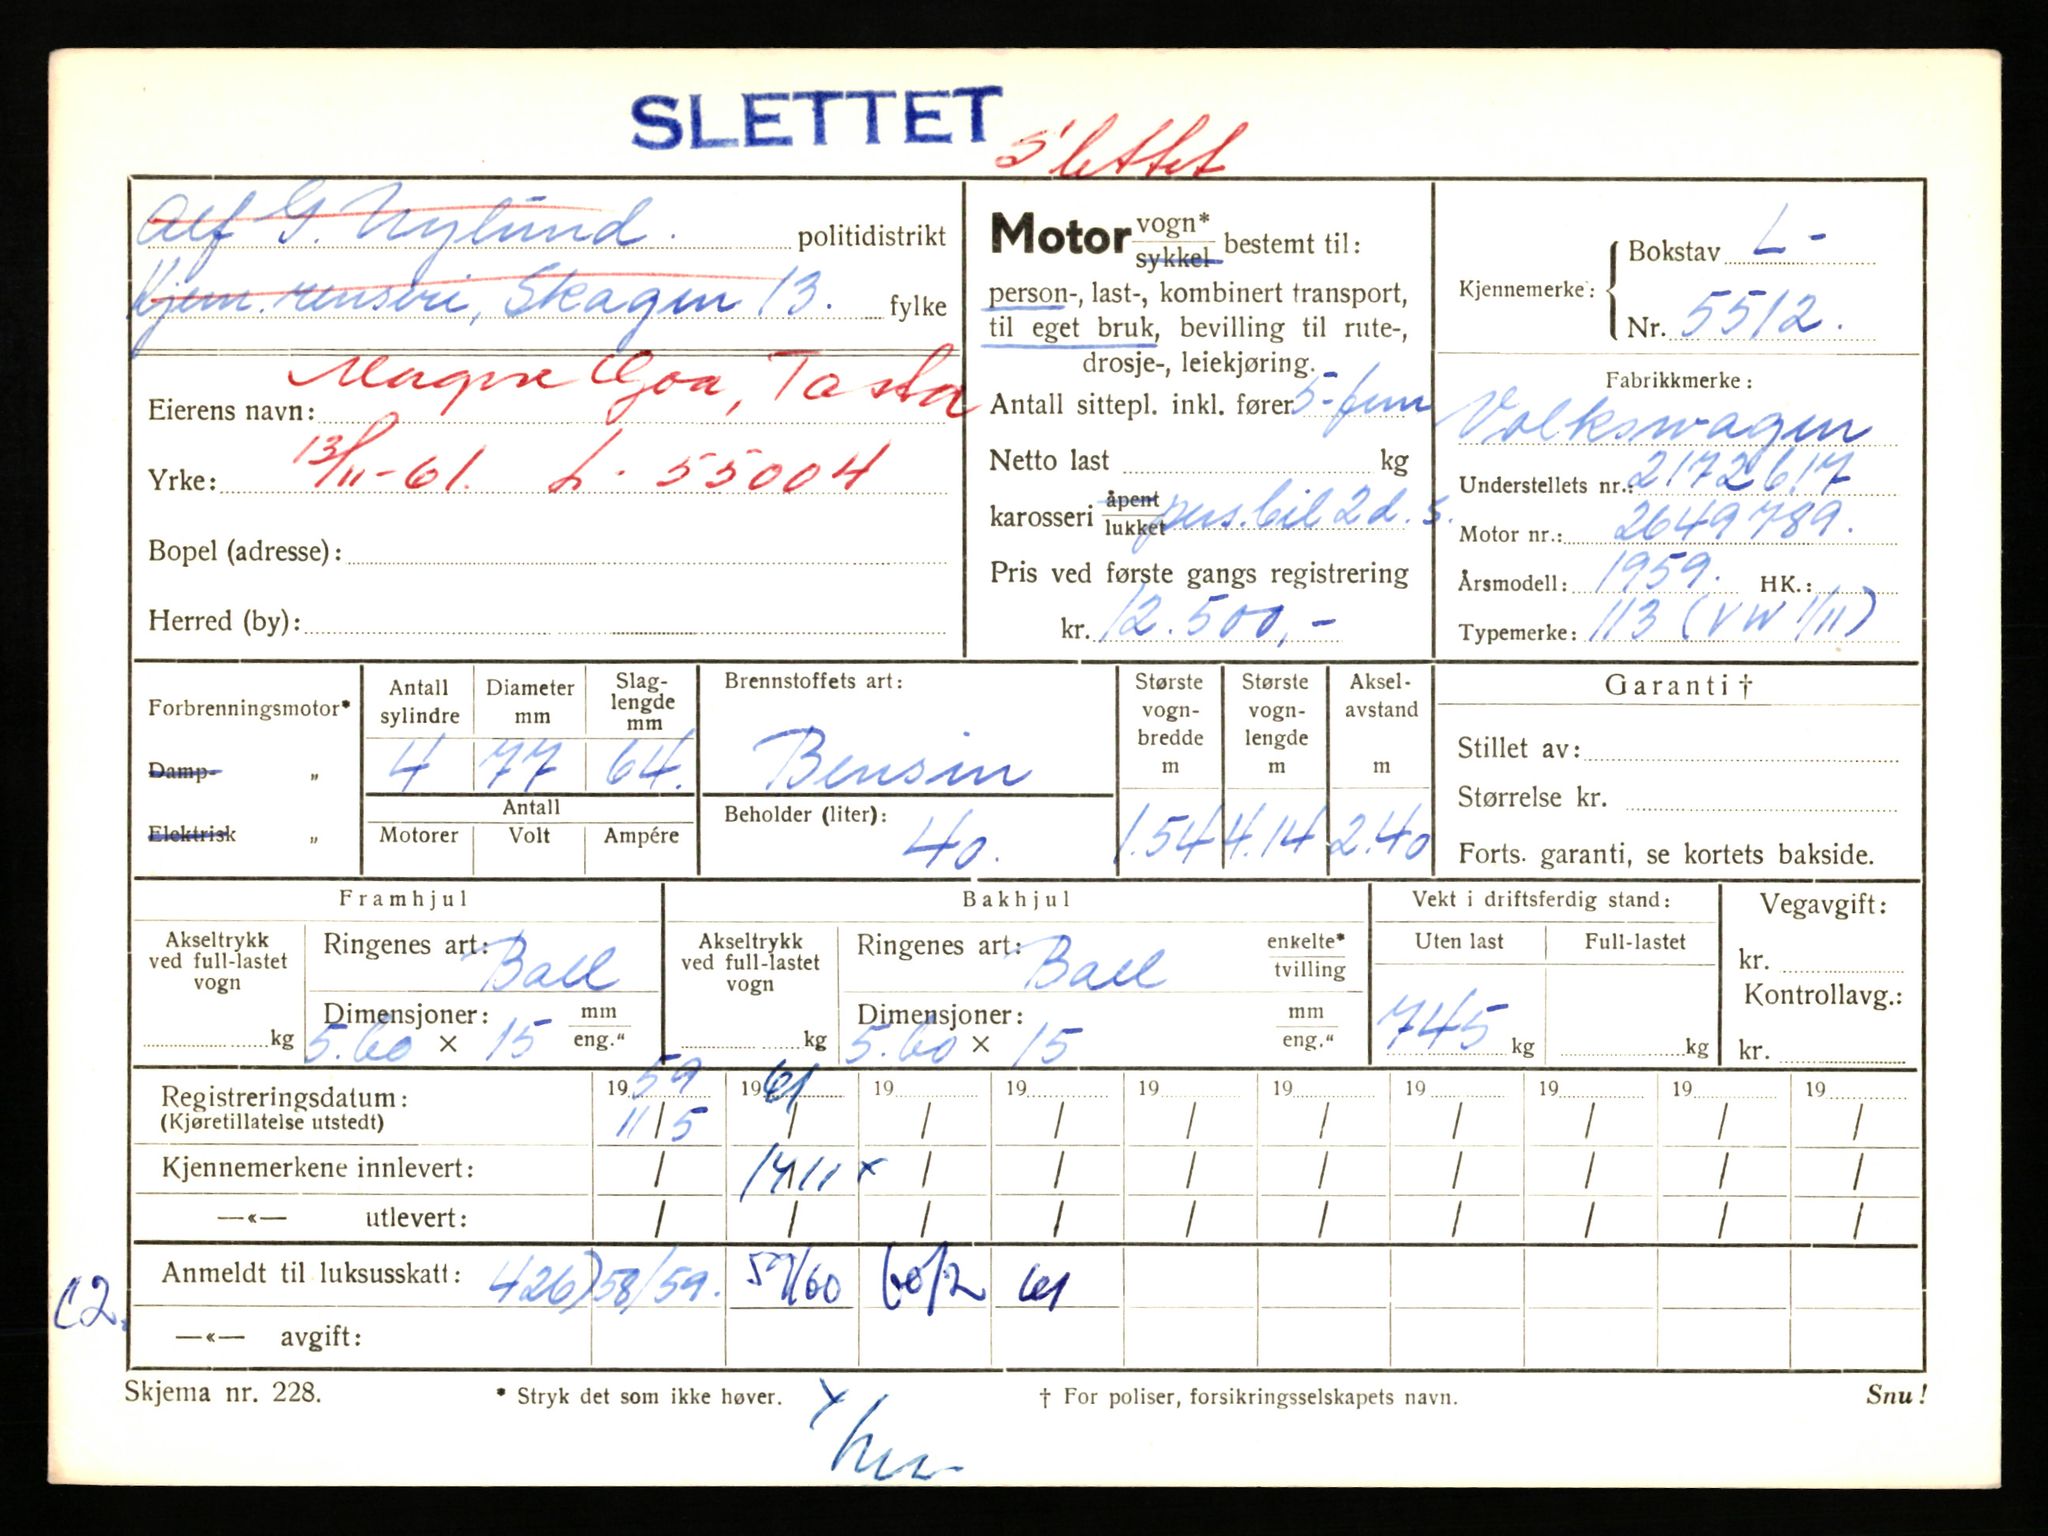 SLETTET
Slettet
Alf G. Nylund. politidistrikt
Kjem. renseri, Skagen 13. fylke
Eierens navn: Magne Goa, Tasta
Yrke: 13/11-61. L- 55004
Bopel (adresse):
Herred (by):
Motor vogn* sykkel bestemt til:
person-, last-, kombinert transport,
til eget bruk, bevilling til rute-,
drosje-, leiekjøring.
Antall sittepl. inkl. fører 5-fem
Netto last kg
karosseri åpent lukket pers.bil 2 d. s.
Pris ved første gangs registrering
kr. 12.500,-
Kjennemerke: Bokstav L-
Nr. 5512.
Fabrikkmerke:
Volkswagen
Understellets nr.: 2172617
Motor nr.: 2649789.
Årsmodell: 1959. HK.:
Typemerke: 113 (VW 1/11)
Forbrenningsmotor*
Damp- „
Elektrisk „
Antall sylindre 4
Diameter mm 77
Slag-lengde mm 64.
Antall
Motorer Volt Ampére
Brennstoffets art:
Bensin
Beholder (liter):
40.
Største vogn-bredde m 1.54
Største vogn-lengde m 4.14
Aksel-avstand m 2.40
Garanti †
Stillet av:
Størrelse kr.
Forts. garanti, se kortets bakside.
Framhjul
Akseltrykk ved full-lastet vogn kg
Ringenes art: Ball
Dimensjoner: mm eng.“
5.60 × 15
Bakhjul
Akseltrykk ved full-lastet vogn kg
Ringenes art: Ball enkelte* tvilling
Dimensjoner: mm eng.“
5.60 × 15
Vekt i driftsferdig stand:
Uten last Full-lastet
745 kg kg
Vegavgift:
kr.
Kontrollavg.:
kr.
Registreringsdatum: 1959 1961 19 19 19 19 19 19 19 19
(Kjøretillatelse utstedt) 11/5 / / / / / / / / /
Kjennemerkene innlevert: / 14/11 x / / / / / / / /
—«— utlevert: / / / / / / / / / /
Anmeldt til luksusskatt: 426) 58/59. 59/60 60/2 61
C2.
—«— avgift:
Skjema nr. 228. * Stryk det som ikke høver. † For poliser, forsikringsselskapets navn. Snu!